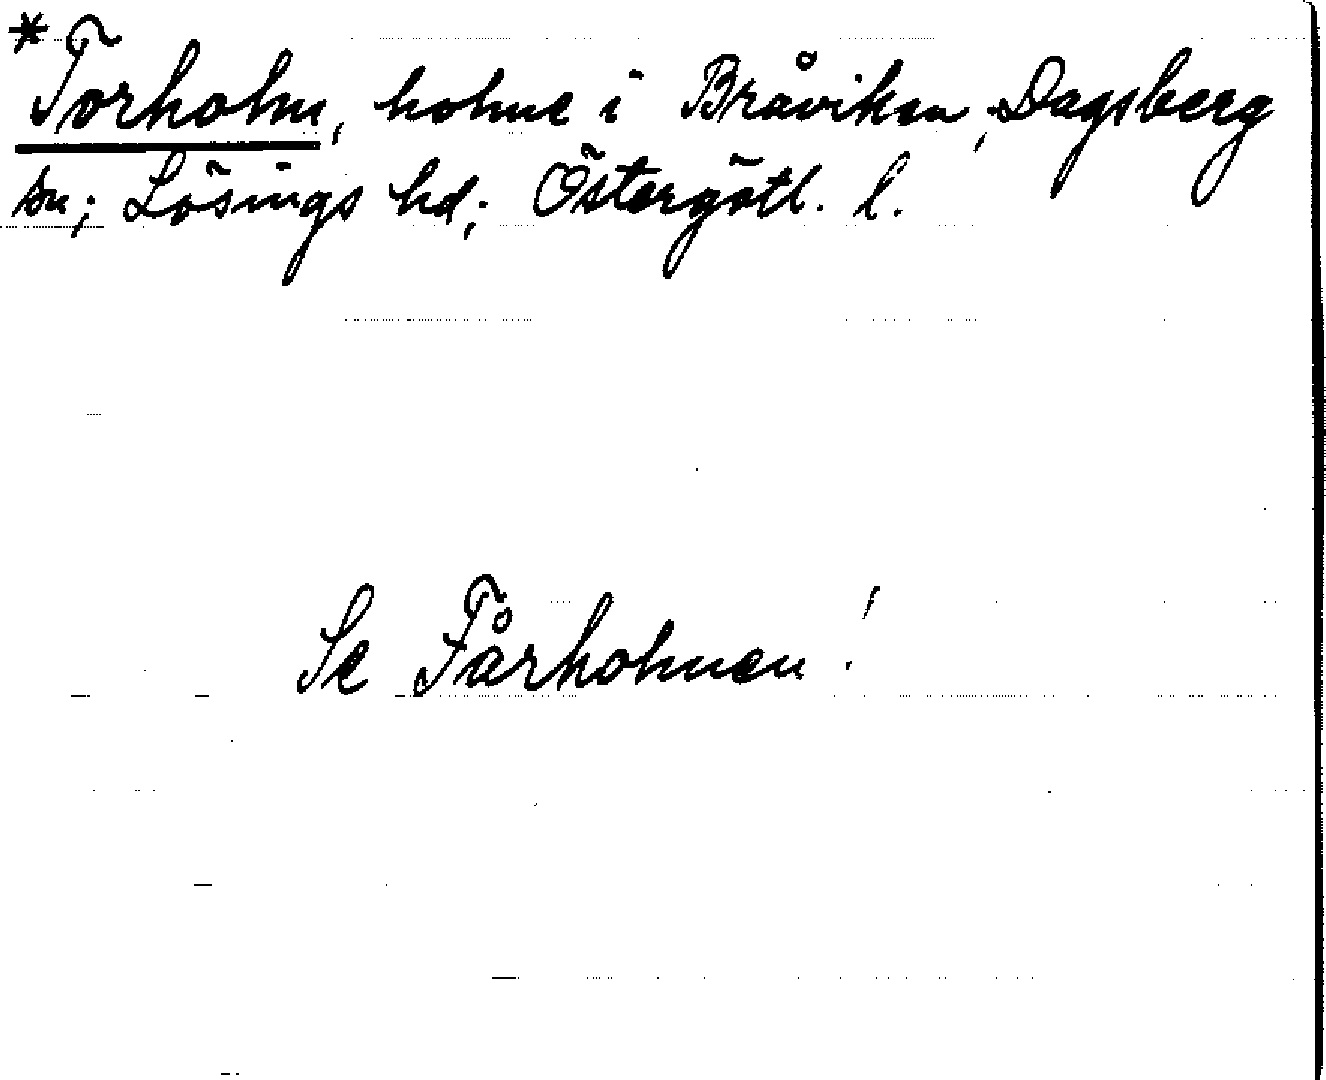 *Torholm, holme i Bråviken, Dagsberg
sn; Lösings hd; Östergötl. l.
Se Fårholmen!